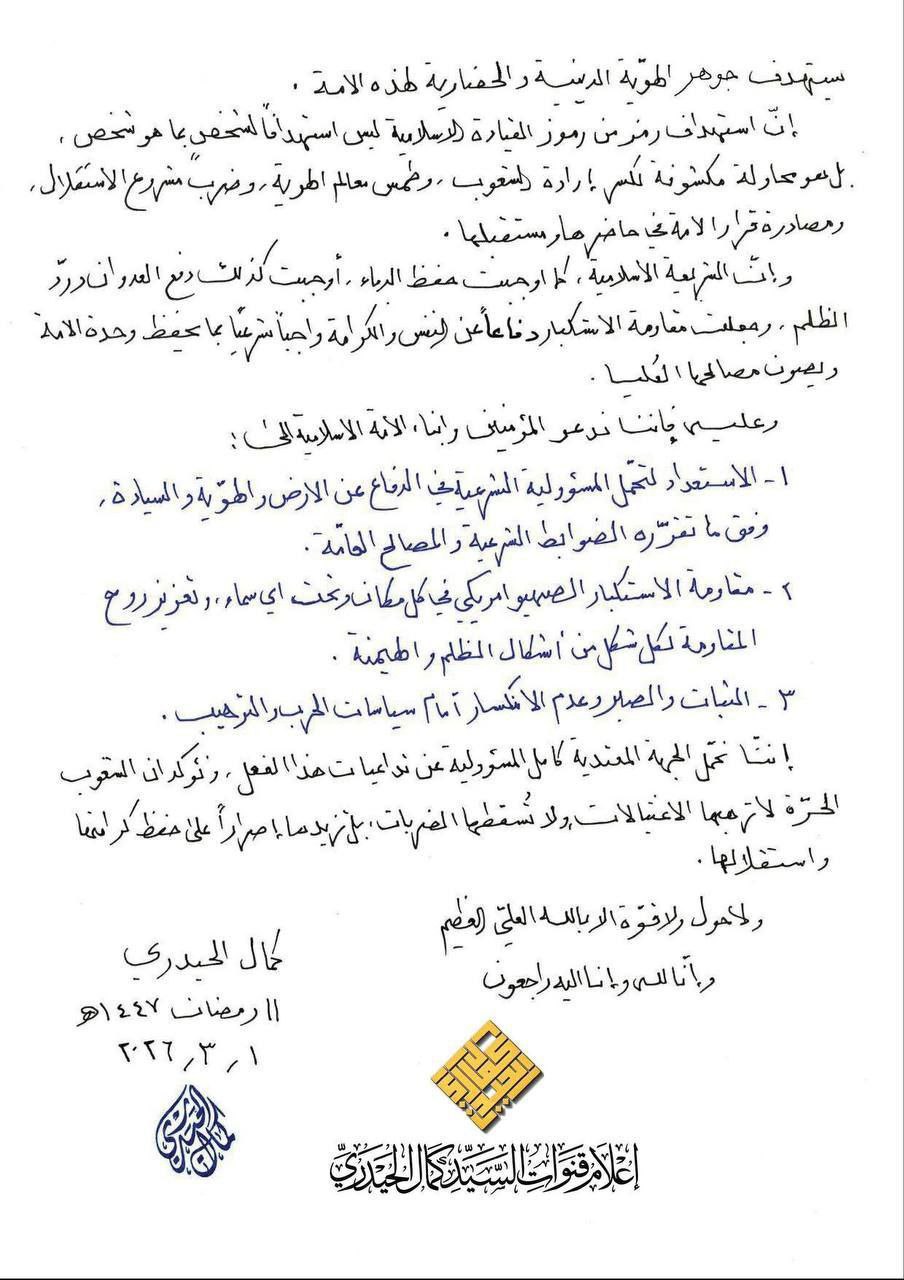 يستهدف جوهر الهوّية الدينية والحضارية لهذه الامة .
إنّ استهداف رمز من رموز القيادة الاسلامية ليس استهدافاً لشخص بما هو شخص ,
بل هو محاولة مكشوفة لكسر إرادة الشعوب , وطمس معالم الهوية , وضرب مشروع الاستقلال ,
ومصادرة قرار الامة في حاضرها ومستقبلها .
وإنّ الشريعة الاسلامية , كما اوجبت حفظ الدماء , أوجبت كذلك دفع العدوان وردّ
الظلم , وجعلت مقاومة الاستكبار دفاعاً عن النفس والكرامة واجباً شرعيّاً بما يحفظ وحدة الامة
ويصون مصالحها العُليا .
وعليه فإننا ندعو المؤمنين وابناء الأمة الاسلامية الى :
١ - الاستعداد لتحمّل المسؤولية الشرعية في الدفاع عن الارض والهوّية والسيادة ,
وفق ما تقرّره الضوابط الشرعية والمصالح العامّة .
٢ - مقاومة الاستكبار الصهيوامريكي في كل مكان وتحت اي سماء , وتعزيز روح
المقاومة لكل شكل من أشكال الظلم والهيمنة .
٣ - الثبات والصبر وعدم الانكسار أمام سياسات الحرب والترهيب .
إننّا نحمّل الجهة المعتدية كامل المسؤولية عن تداعيات هذا الفعل , ونؤكد ان الشعوب
الحرّة لا ترهبها الاغتيالات , ولا تُسقطها الضربات , بل تزيدها إصراراً على حفظ كرامتها
واستقلالها .
ولا حول ولا قوّة الا بالله العليّ العظيم
وأنا لله وإنا اليه راجعون
كمال الحيدري
١١ رمضان ١٤٤٧هـ
١ , ٣ , ٢٠٢٦
كمال الحيدري
إعلام قنوات السيد كمال الحيدري